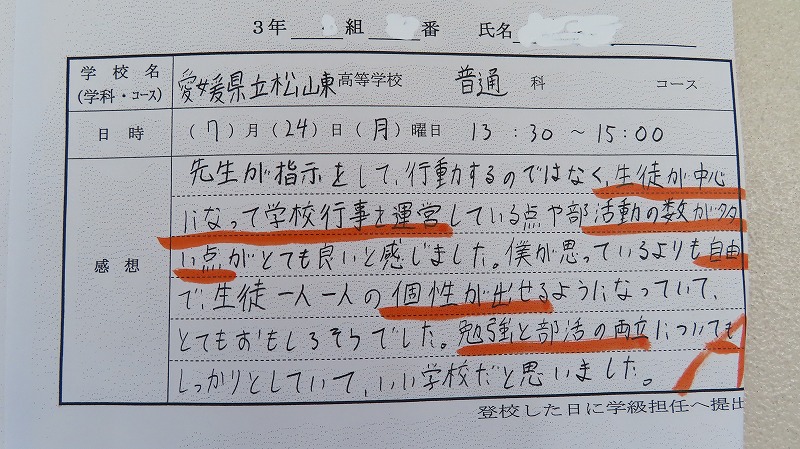 ３年 組 番 氏名
学校名 愛媛県立松山東高等学校 普通 科 コース
(学科・コース)
日時 (7)月(24)日(月)曜日 13：30～15：00
先生が指示をして、行動するのではなく、生徒が中心
になって学校行事を運営している点や部活動の数が多
い点がとても良いと感じました。僕が思っているよりも自由
感想
で、生徒一人一人の個性が出せるようになっていて、
とてもおもしろそうでした。勉強と部活の両立についても
しっかりとしていて、いい学校だと思いました。
A
登校した日に学級担任へ提出